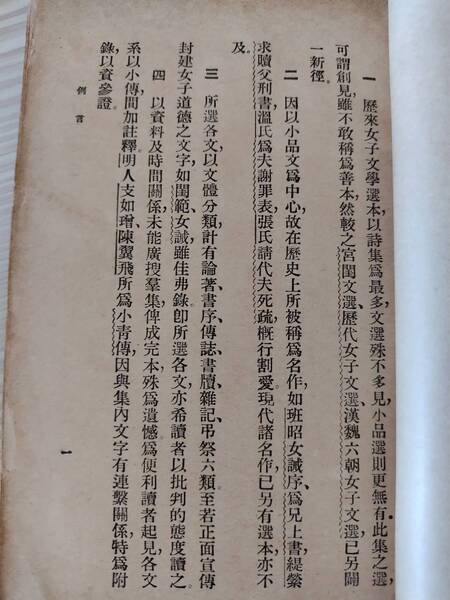 一　歷來女子文學選本，以詩集爲最多，文選殊不多見，小品選則更無有，此集之選，
可謂創見，雖不敢稱爲善本，然較之宮閨文選、歷代女子文選、漢魏六朝女子文選，已另闢
一新徑。
二　因以小品文爲中心，故在歷史上所被稱爲名作，如班昭女誡序、爲兄上書，緹縈
求贖父刑書，溫氏爲夫謝罪表，張氏請代夫死疏，槪行割愛，現代諸名作，已另有選本，亦不
及。
三　所選各文，以文體分類，計有論著、書序、傳誌、書牘、雜記、弔祭六類。至若正面宣傳
封建女子道德之文字，如閨範、女誡，雖佳弗錄，卽所選各文，亦希讀者以批判的態度讀之。
四　以資料及時間關係，未能廣搜羣集，俾成完本，殊爲遺憾，爲便利讀者起見，各文
系以小傳，間加註釋，明人支如璔、陳翼飛所爲小靑傳，因與集內文字有連繫關係，特爲附
錄，以資參證。
例言
一